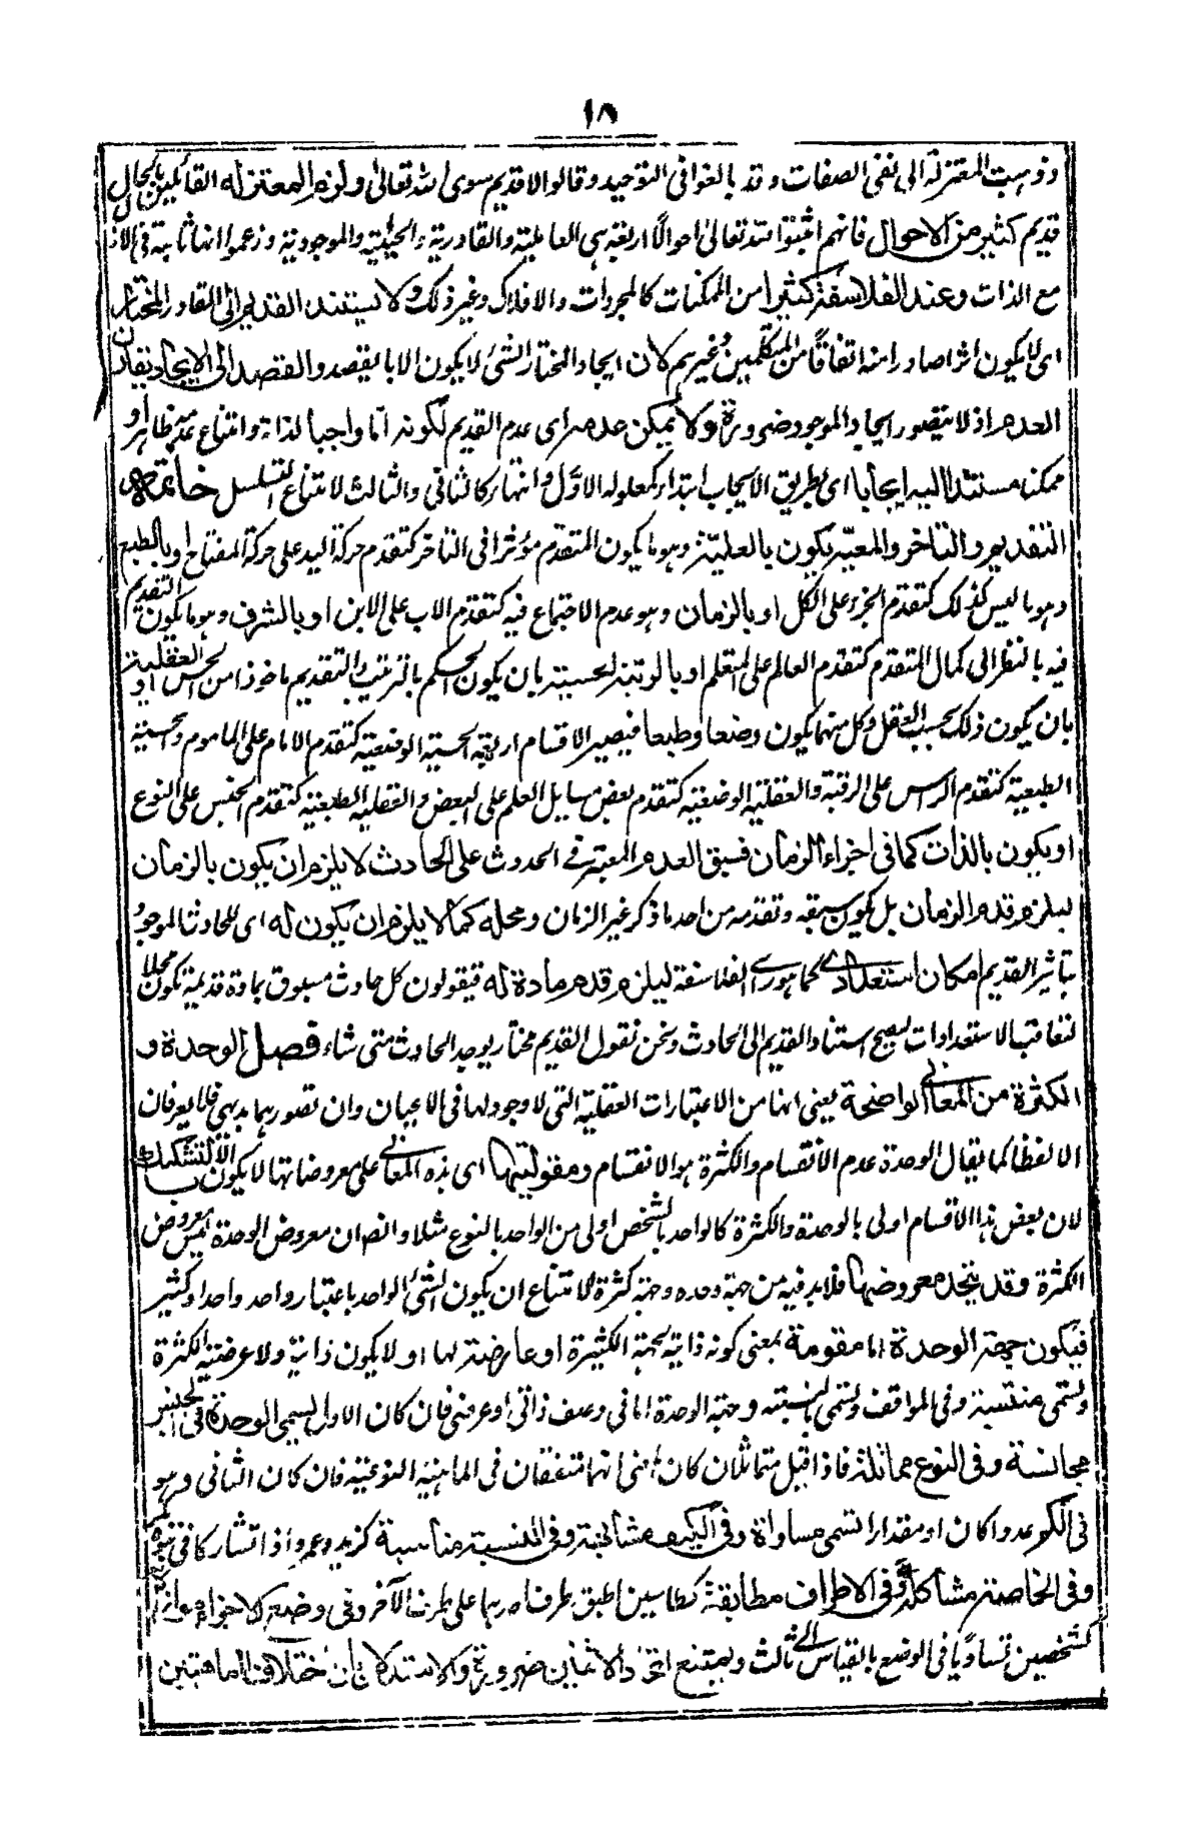 ١٨
وذهبت المعتزلة الى نفى الصفات وقد بالغوا فى التوحيد وقالوا لا قديم سوى الله تعالى ولزم المعتزلة القائلين بالحال
قديم كثير من الاحوال فانهم اثبتوا لله تعالى احوالًا اربعة هى العالمية والقادرية والحيية والموجودية وزعموا انها ثابتة فى الازل
مع الذات وعند الفلاسفة كثيرا من الممكنات كالمجردات والافلاك وغير ذلك ولا يستند القديم الى القادر المختار
اى لا يكون اثرا صادرا منه اتفاقًا من المتكلمين وغيرهم لان ايجاد المختار الشئ لا يكون الا بالقصد والقصد الى الايجاد يقارن
العدم اذ لا يتصور ايجاد الموجود ضرورة ولا يمكن عدمه اى عدم القديم لكونه اما واجبا لذاته وامتناع عدمه ظاهر او
ممكنا مستندا اليه ايجابا اى بطريق الايجاب ابتداء كمعلوله الاول وانتهاء كالثانى والثالث لامتناع التسلسل خاتمة
التقديم والتاخر والمعية يكون بالعلية وهو ما يكون المتقدم مؤثرا فى التاخر كتقدم حركة اليد على حركة المفتاح او بالطبع
وهو ما ليس كذلك كتقدم الجزء على الكل او بالزمان وهو عدم الاجتماع فيه كتقدم الاب على الابن او بالشرف وهو ما يكون التقديم
فيه بالنظر الى كمال المتقدم كتقدم العالم على المتعلم او بالرتبة الحسية بان يكون الحكم بالترتيب والتقديم ماخوذا من الحس او العقلية
بان يكون ذلك بحسب العقل وكل منهما يكون وضعا وطبعا فيصير الاقسام اربعة الحسية الوضعية كتقدم الامام على الماموم والحسية
الطبعية كتقدم الراس على الرقبة والعقلية الوضعية كتقدم بعض مسايل العلم على البعض والعقلية الطبعية كتقدم الجنس على النوع
او يكون بالذات كما فى اجزاء الزمان فسبق العدم المعتبر فى الحدوث على الحادث لا يلزم ان يكون بالزمان
ليلزم قدم الزمان بل يكون سبقه وتقدمه من احد ما ذكر غير الزمان ومحله كما لا يلزم ان يكون له اى للحادث الموجود
بتاثير القديم امكان استعدادى كما هو راى الفلاسفة ليلزم قدم مادة له فيقولون كل حادث مسبوق بمادة قديمة يكون محلا
لتعاقب الاستعدادات ليصح استناد القديم الى الحادث ونحن نقول القديم مختار يوجد الحادث متى شاء فصل الوحدة و
الكثرة من المعانى الواضحة يعنى انها من الاعتبارات العقلية التى لا وجود لها فى الاعيان وان تصورهما بديهى فلا يعرفان
الا لفظا كما يقال الوحدة عدم الانقسام والكثرة هو الانقسام ومقوليتها اى هذه المعانى على معروضاتها لا يكون الا بالتشكيك
لان بعض هذا الاقسام اولى بالوحدة والكثرة كالواحد بالشخص اولى من الواحد بالنوع مثلا وانصح ان معروض الوحدة ليس معروض
الكثرة وقد يتحد معروضها فلا بد فيه من جهة وحدة وجهة كثرة لامتناع ان يكون الشئ الواحد باعتبار واحد واحدا وكثير
فيكون جهة الوحدة اما مقومة بمعنى كونه ذاتية لجهة الكثيرة او عارضة لها او لا يكون ذاتية ولا عرضية لكثرة
وتسمى منتسبة وفى المواقف وتسمى بالنسبة وجهة الوحدة اما فى وصف ذاتى او عرضى فان كان الاول يسمى الوحدة فى الجنس
مجانسة وفى النوع مماثلة فاذا قيل متماثلان كان المعنى انهما متفقان فى الماهية النوعية فان كان الثانى وهو
فى الكم عددا كان او مقدارا تسمى مساواة وفى الكيف مشابهة وفى النسبة مناسبة كزيد وعمرو اذا تشاركا فى بنوة
وفى الخاصة مشاكلة وفى الاطراف مطابقة كطاسين اطبق طرف احدهما على طرف الآخر وفى وضع الاجزاء موازاة
كشخصين تساويا فى الوضع بالقياس الى ثالث ويمتنع اتحاد الاثنين ضرورة والاستدلال بان اختلاف الماهيتين